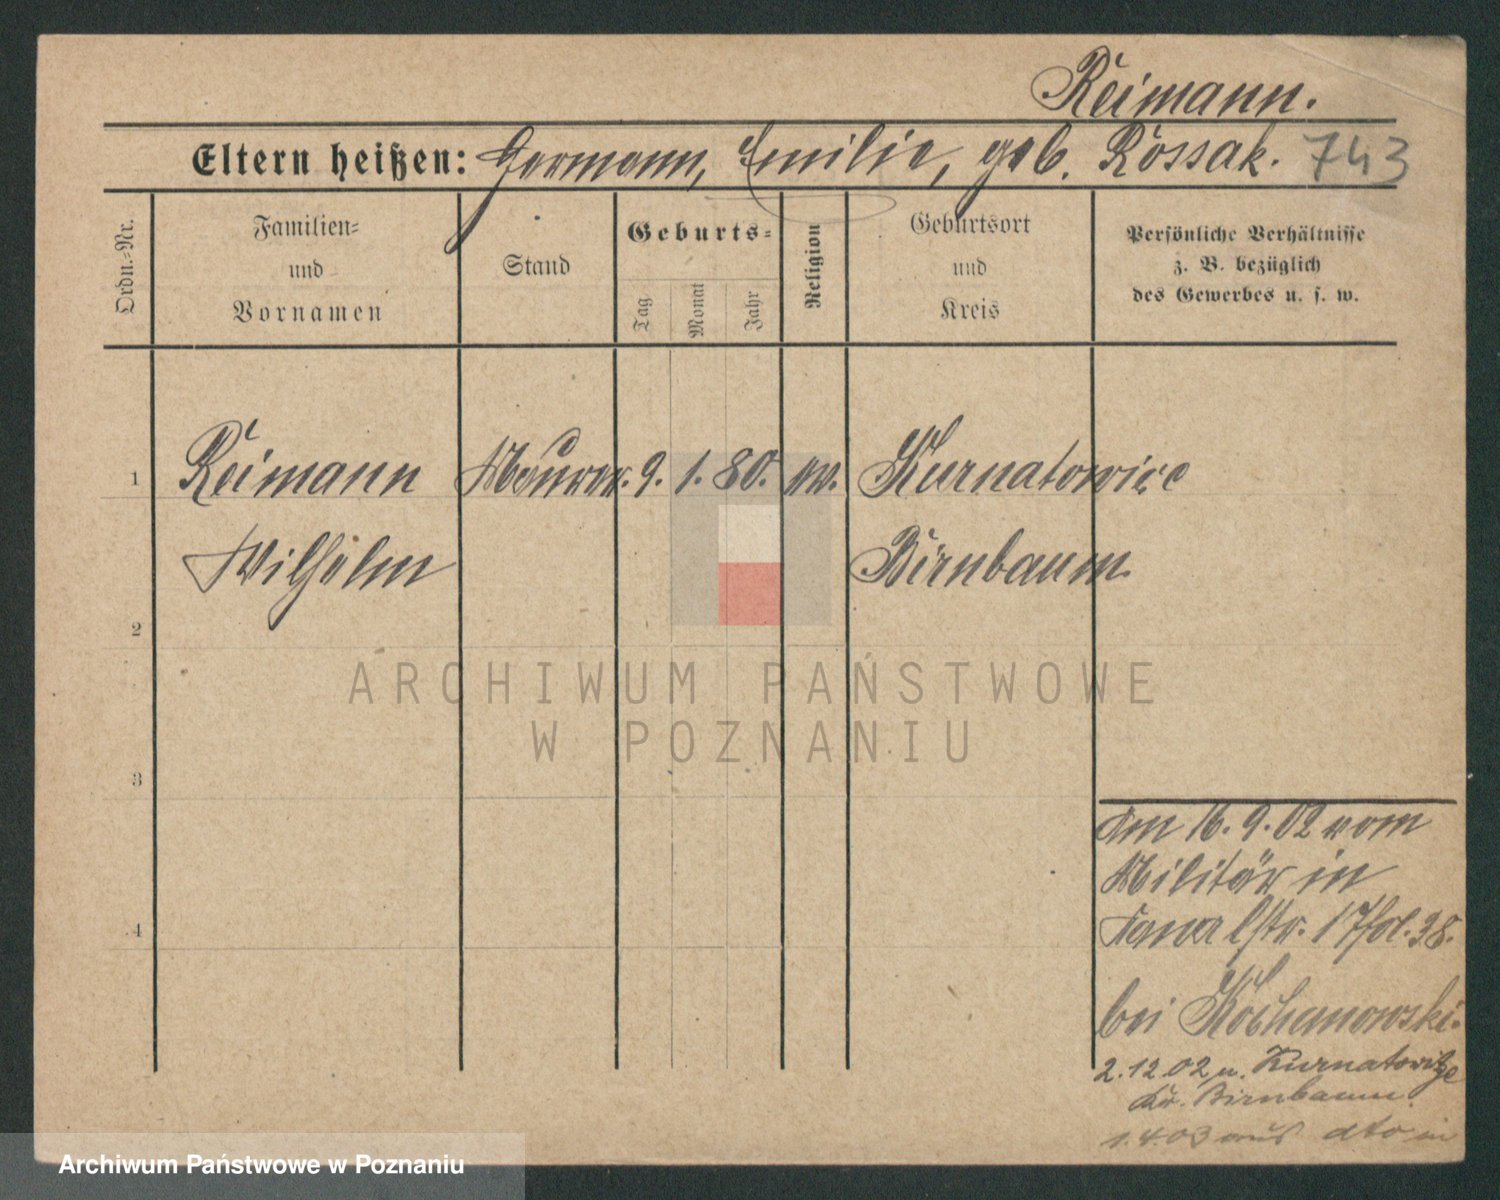 Reimann.
Eltern heißen: Hermann, Emilie, geb. Rossak. 743
Ordn.-Nr.
Familien-
und
Vornamen
Stand
Geburts-
Tag
Monat
Jahr
Religion
Geburtsort
und
Kreis
Persönliche Verhältnisse
z. B. bezüglich
des Gewerbes u. s. w.
1 Reimann Maurer. 9. 1. 80. ev. Kurnatowice
Wilhelm Birnbaum.
2
3
4
Am 16.9.02 vom
Militär in
Kanalstr. 17 fol. 38.
bei Kochanowski.
2.12.02 n. Kurnatowitze
Kr. Birnbaum.
1.4.03 aus dto in
ARCHIWUM PAŃSTWOWE
W POZNANIU
Archiwum Państwowe w Poznaniu